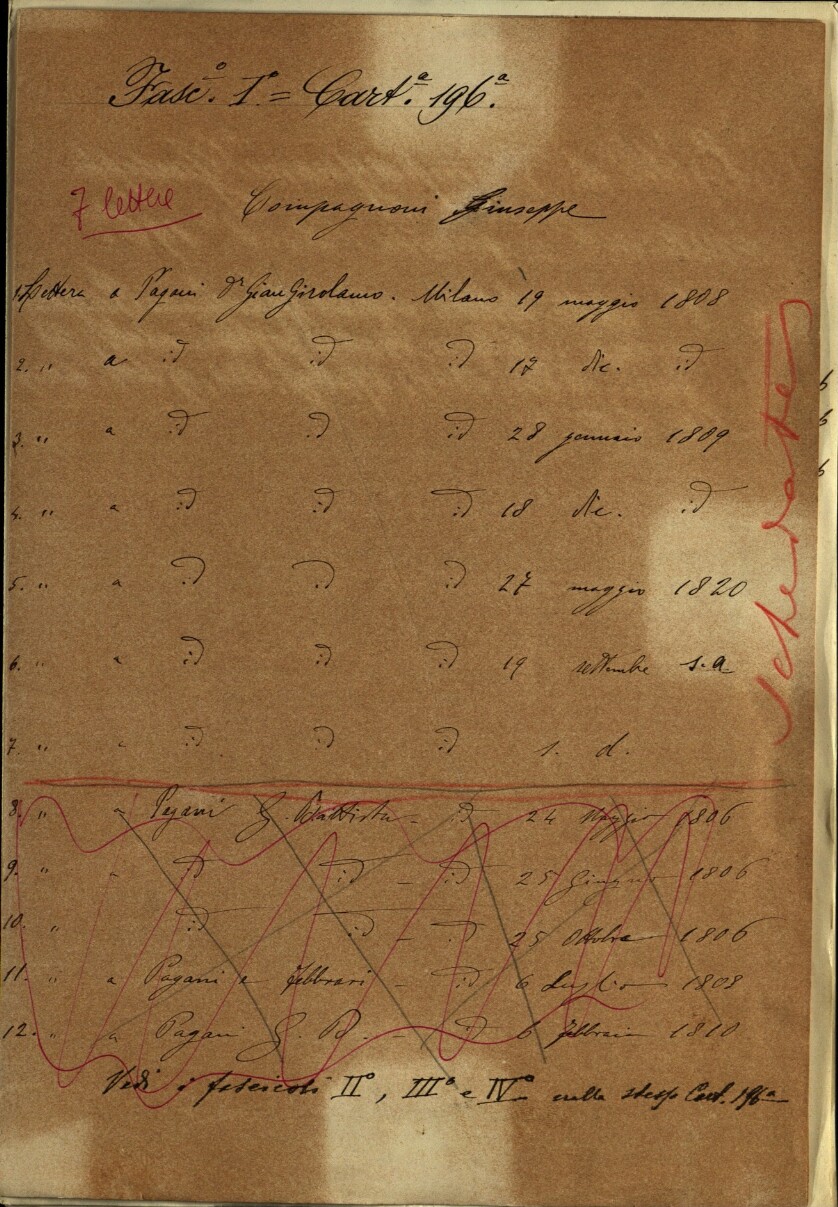 Fasc.º Iº = Cart.ª 196ª.
7 lettere
Compagnoni Giuseppe
1. Lettera a Pagani Dr GianGirolamo. Milano 19 maggio 1808
2. " a id id id 17 dic. id
3. " a id id id 28 gennaio 1809
4. " a id id id 18 dic. id
5. " a id id id 27 maggio 1820
6. " a id id id 19 settembre s.a
7. " " id id id s. d.
schedate
8. " a Pagani G. Battista - id 24 Maggio 1806
9. " " id id - id 25 Giugno 1806
10. " id id - id 25 Ottobre 1806
11. " a Pagani e Febbrari - id 6 Luglio 1808
12. " a Pagani G. B. - id 6 febbraio 1810
Vedi i fascicoli IIº, IIIº e IVº nella stessa Cart. 196ª